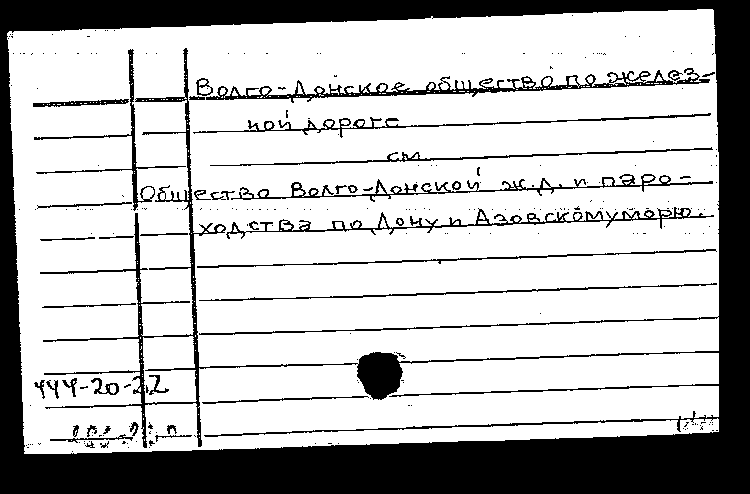 Волго-Донское общество по желез-
ной дороге
см.
Общество Волго-Донской ж.д. и паро-
ходства по Дону и Азовскому морю.
444-20-22